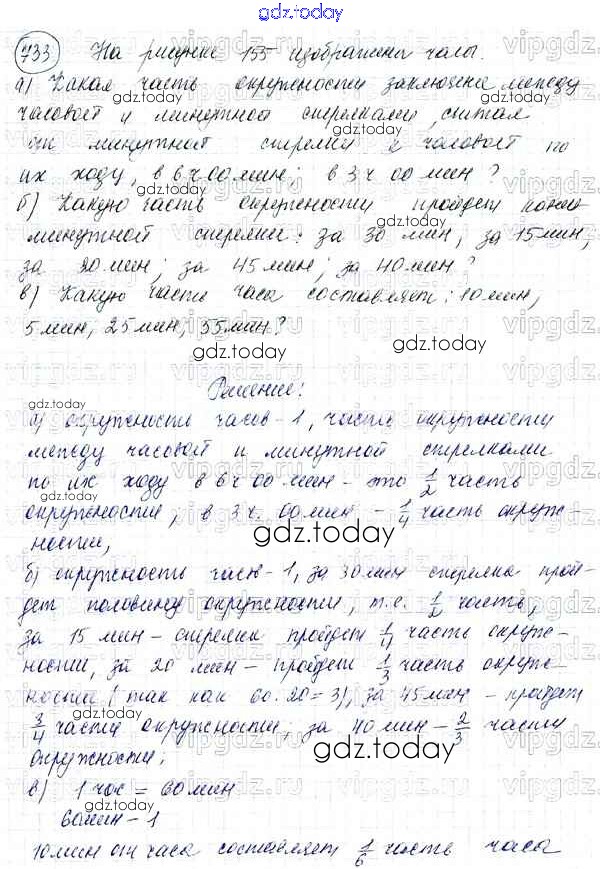 gdz.today
733 На рисунке 155 изображены часы.
а) Какая часть окружности заключена между
часовой и минутной стрелками, считая
от минутной стрелки к часовой по
их ходу, в 6 ч 00 мин; в 3 ч 00 мин?
б) Какую часть окружности пройдет конец
минутной стрелки: за 30 мин; за 15 мин;
за 20 мин; за 45 мин; за 40 мин?
в) Какую часть часа составляет: 10 мин,
5 мин, 25 мин, 55 мин?
Решение:
а) окружность часов - 1, часть окружности
между часовой и минутной стрелками
по их ходу в 6 ч 00 мин - это 1/2 часть
окружности; в 3 ч. 00 мин - 1/4 часть окруж-
ности,
б) окружность часов - 1, за 30 мин стрелка прой-
дет половину окружности, т.е. 1/2 часть,
за 15 мин - стрелка пройдет 1/4 часть окруж-
ности, за 20 мин - пройдет 1/3 часть окруж-
ности (так как 60:20=3), за 45 мин - пройдет
3/4 части окружности; за 40 мин - 2/3 части
окружности;
в) 1 час = 60 мин
60 мин - 1
10 мин от часа составляет 1/6 часть часа